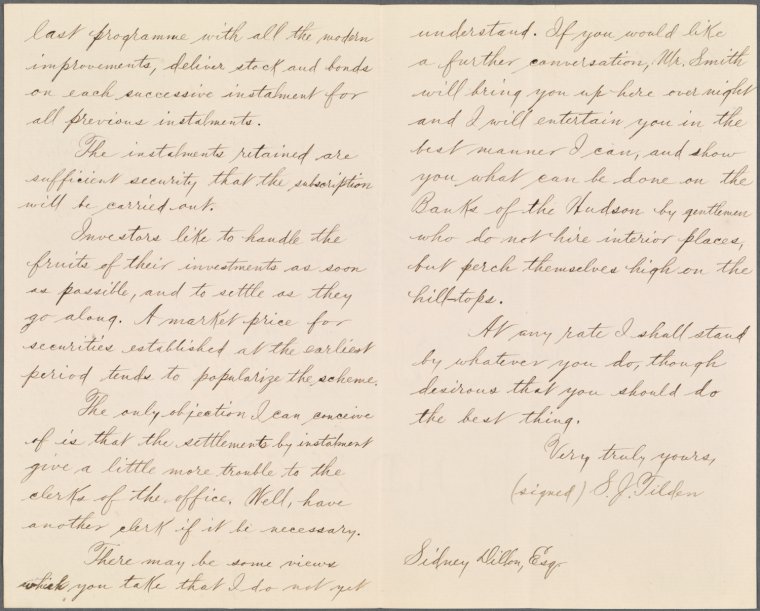 last programme with all the modern
improvements, deliver stock and bonds
on each successive instalment for
all previous instalments.
The instalments retained are
sufficient security that the subscription
will be carried out.
Investors like to handle the
fruits of their investments as soon
as possible, and to settle as they
go along. A market price for
securities established at the earliest
period tends to popularize the scheme.
The only objection I can conceive
of is that the settlements by instalment
give a little more trouble to the
clerks of the office. Well, have
another clerk if it be necessary.
There may be some views
which you take that I do not yet
understand. If you would like
a further conversation, Mr. Smith
will bring you up here over night
and I will entertain you in the
best manner I can, and show
you what can be done on the
Banks of the Hudson by gentlemen
who do not hire interior places,
but perch themselves high on the
hill-tops.
At any rate I shall stand
by whatever you do, though
desirous that you should do
the best thing.
Very truly yours,
(signed) S. J. Tilden
Sidney Dillon, Esqr